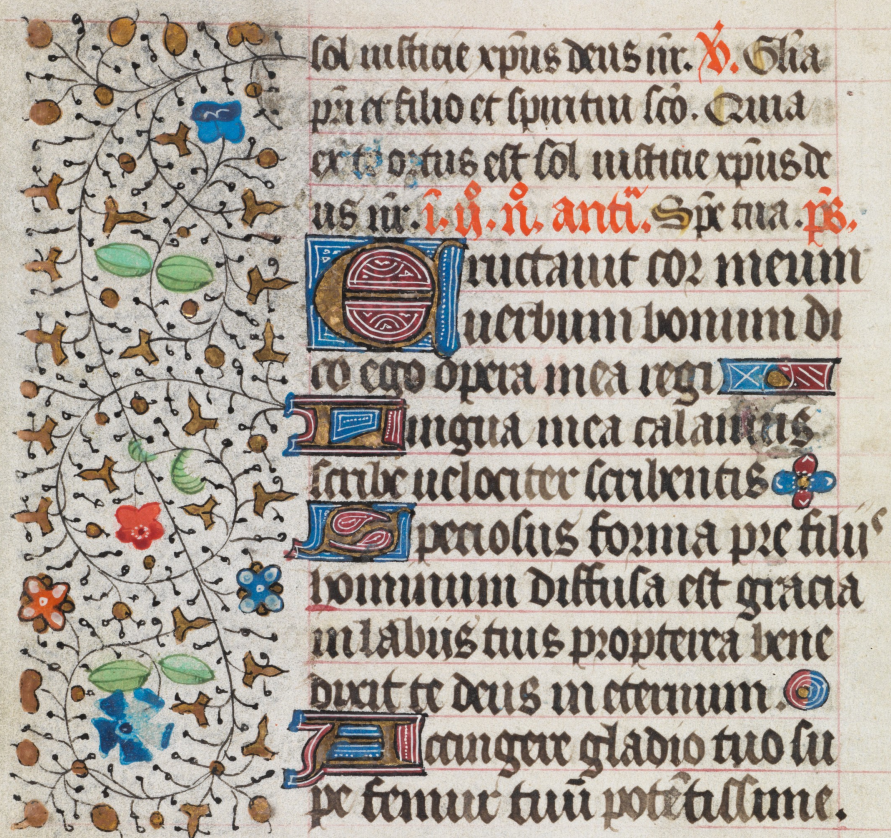 sol iusticie xp̄us deus nr̄. V̄. Gl̄ia
pr̄i et filio et spiritui sc̄o. Quia
ex te ortus est sol iusticie xp̄us de
us nr̄. ī. ij̊. n̊. antī. Spē tua. ps̄.
Eructauit cor meum
uerbum bonum di
co ego opera mea regi
Lingua mea calamus
scribe uelociter scribentis
Speciosus forma pre filijs
hominum diffusa est gracia
in labijs tuis propterea bene
dixit te deus in eternum.
Accingere gladio tuo su
pe femur tuū potētissime.